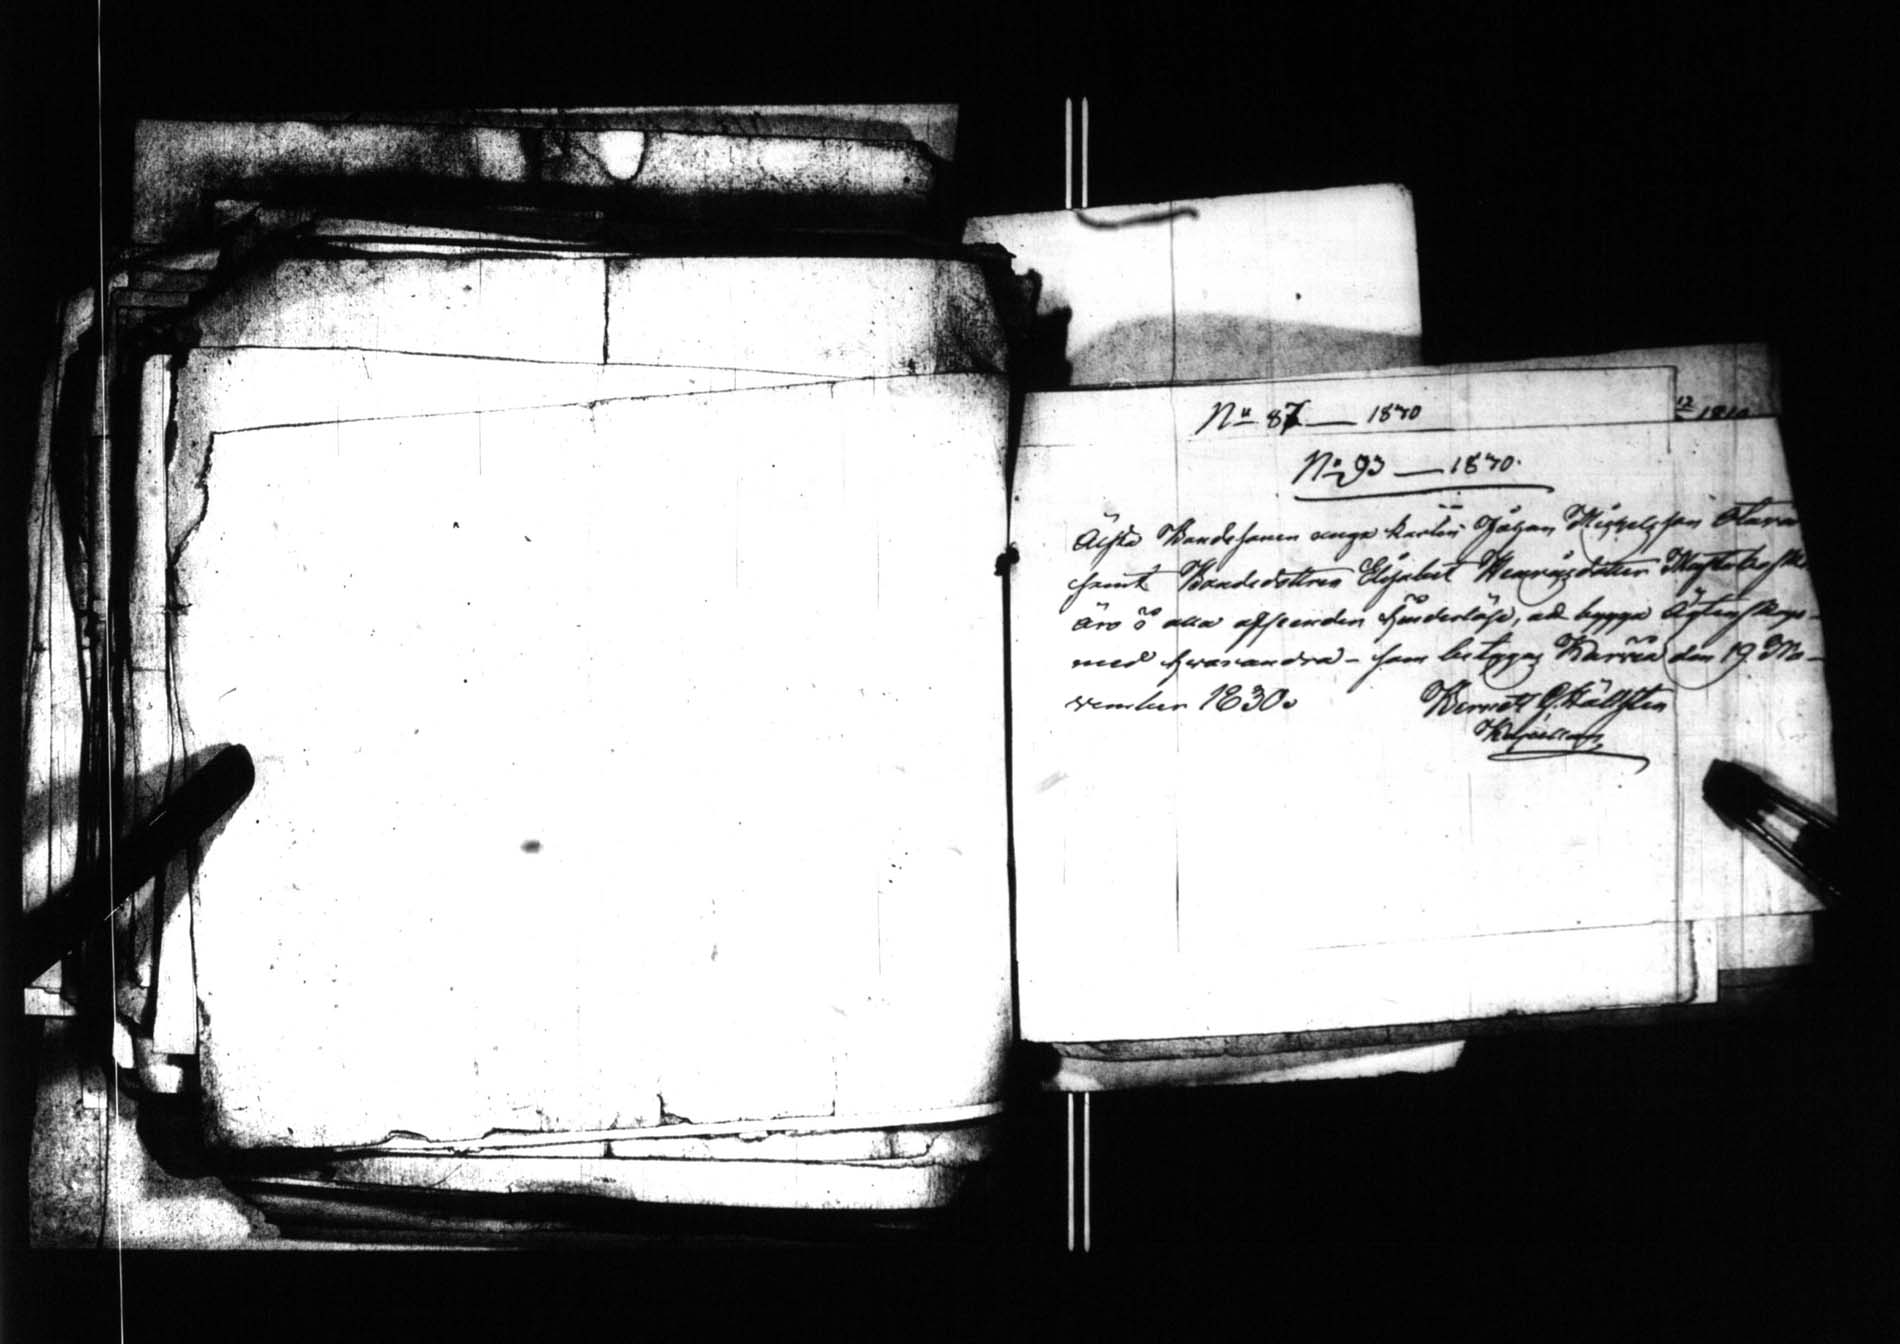 No 87 — 1870
12 1810
No 93 — 1870.
Bondesonen unga karlen Johan Michelsson
samt Bondedottren Elisabet Henricsdotter
äro å alla afseenden hinderlöse, att bygga Ägtenskap
med hvarandra – som betygas Karvia den 19 No-
vember 1830.
Kapellan